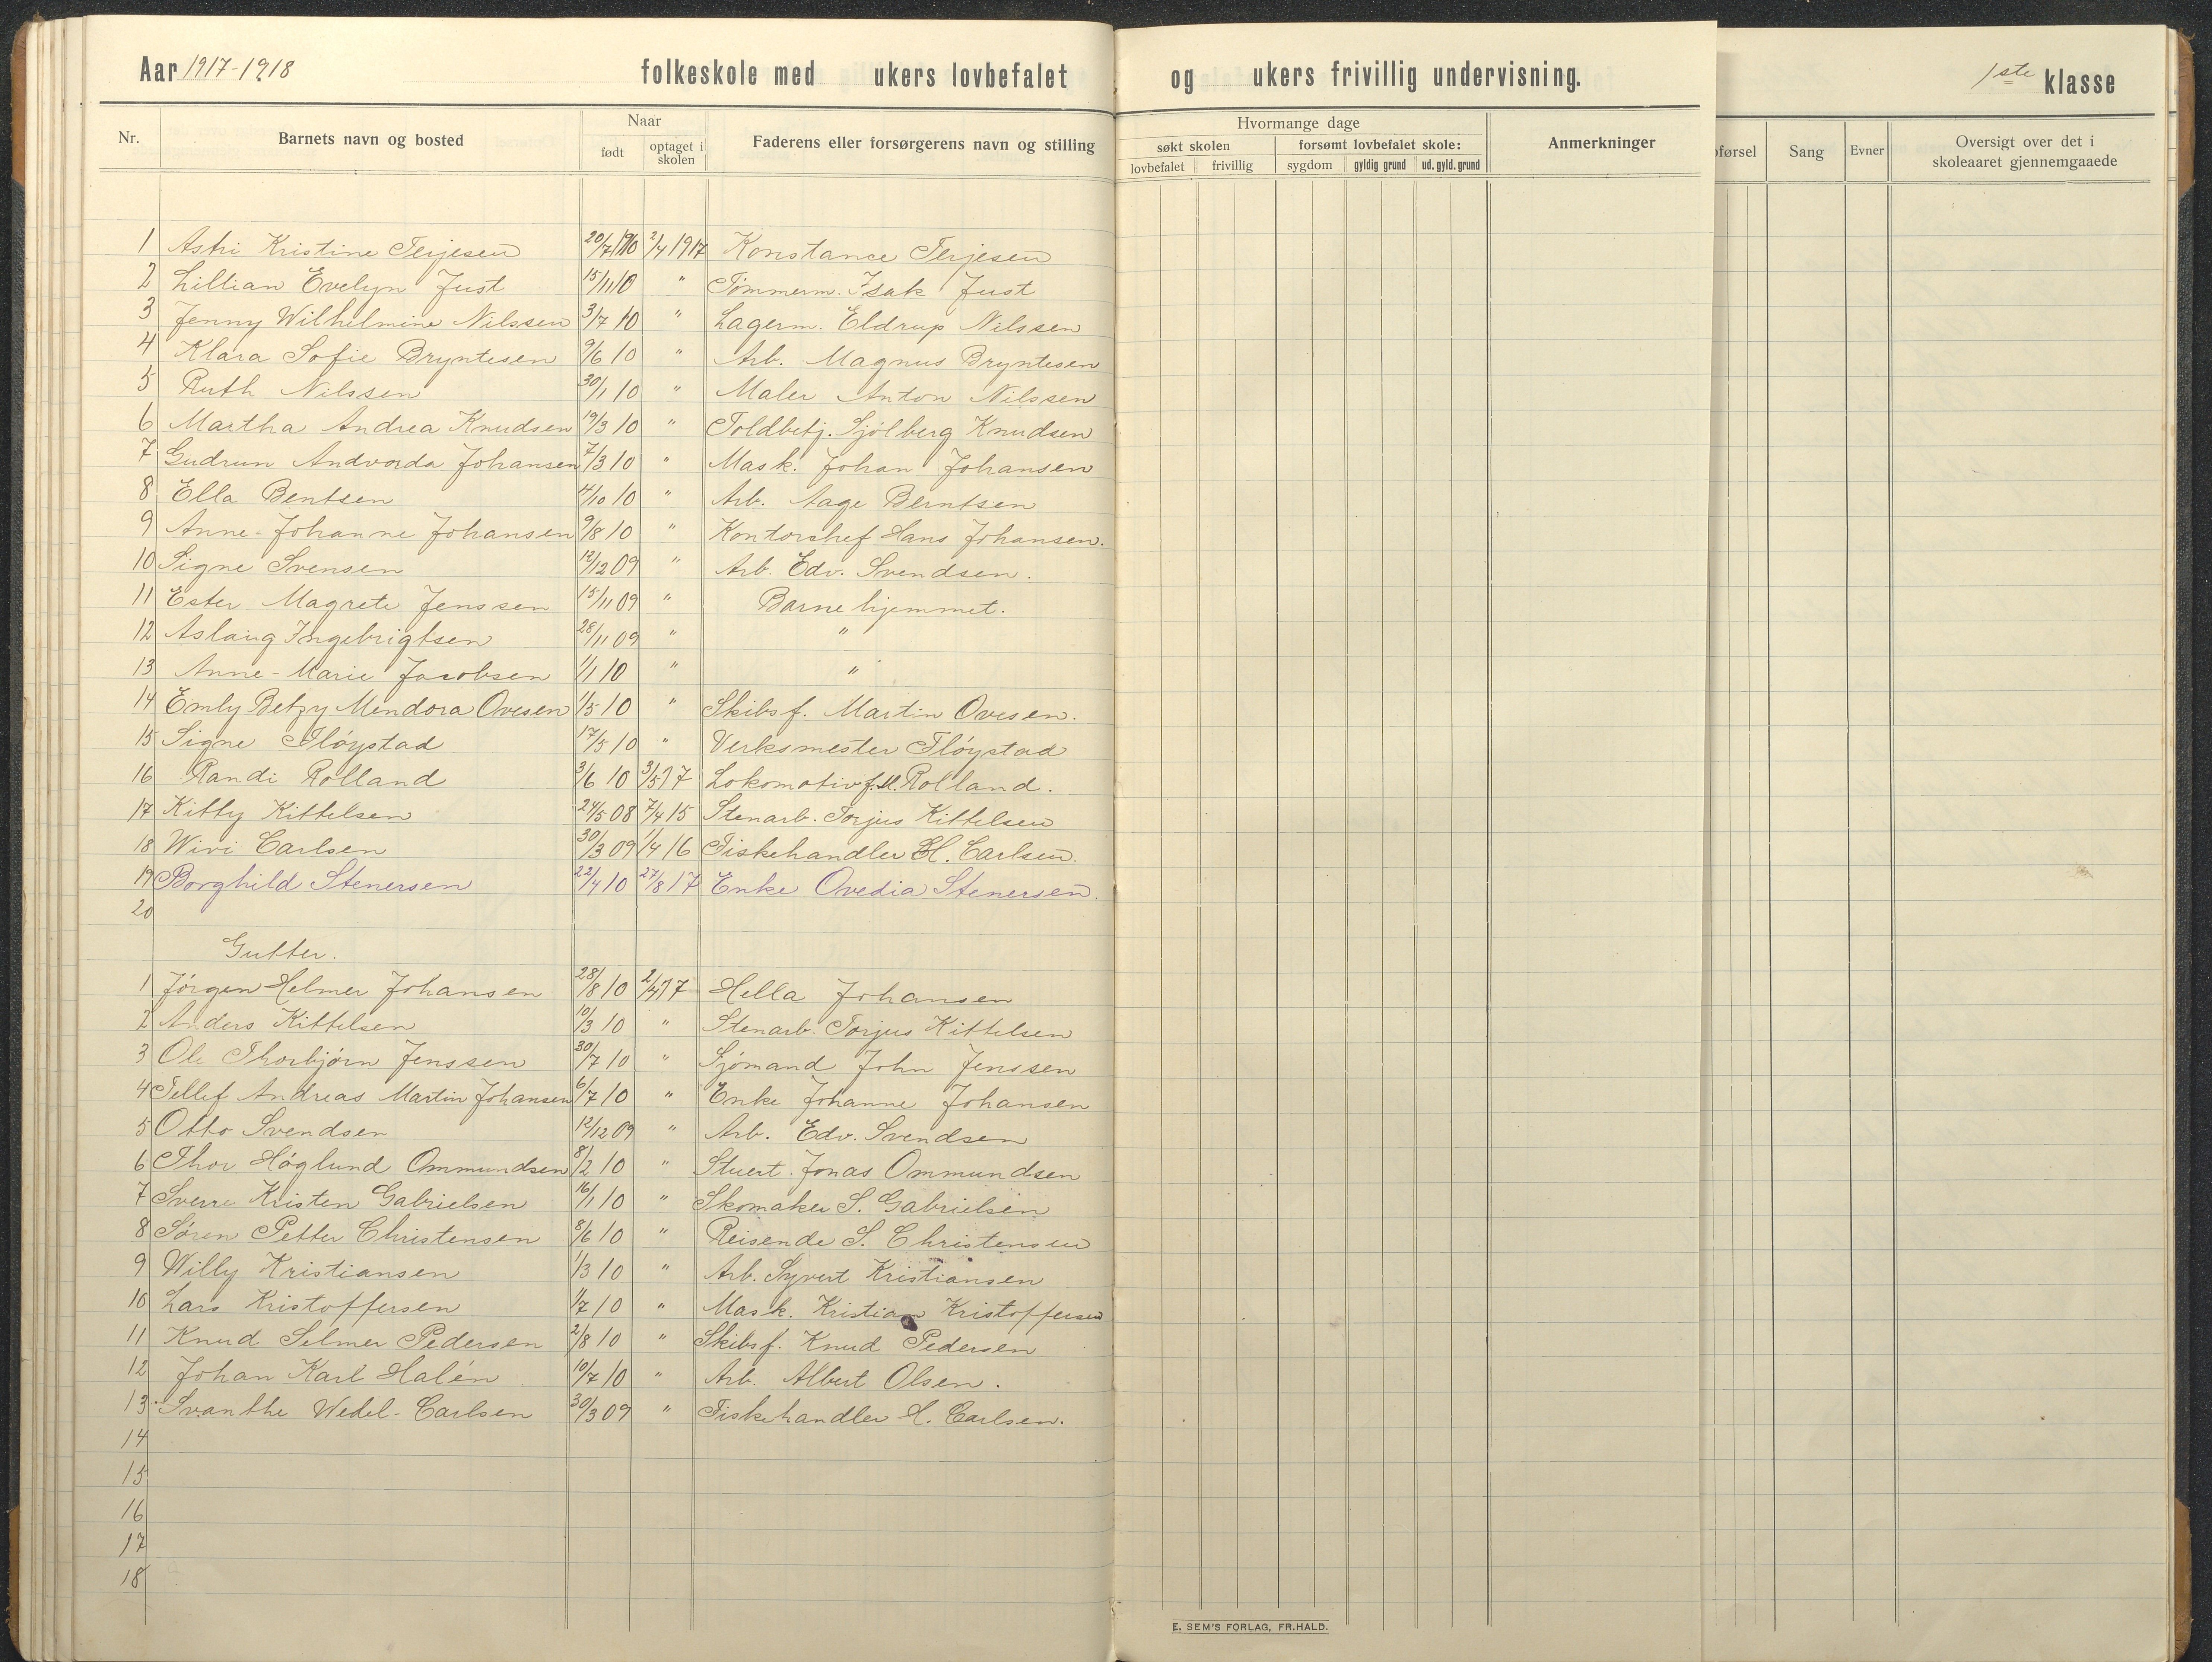 Aar 1917-1918 folkeskole med ukers lovbefalet og ukers frivillig undervisning. 1ste klasse
Nr. Barnets navn og bosted Naar født optaget i skolen Faderens eller forsørgerens navn og stilling Hvormange dage søkt skolen lovbefalet frivillig forsømt lovbefalet skole: sygdom gyldig grund ud. gyld. grund Anmerkninger oførsel Sang Evner Oversigt over det i skoleaaret gjennemgaaede
1 Astri Kristine Terjesen 20/7 1910 2/4 1917 Konstance Terjesen
2 Lillian Evelyn Just 15/11 10 " Tømmerm. Isak Just
3 Jenny Wilhelmine Nilssen 3/7 10 " Lagerm. Eldrup Nilssen
4 Klara Sofie Bryntesen 9/6 10 " Arb. Magnus Bryntesen
5 Ruth Nilssen 30/1 10 " Maler Anton Nilssen
6 Martha Andrea Knudsen 19/3 10 " Toldbetj. Sjølberg Knudsen
7 Gudrun Andvorda Johansen 7/3 10 " Mask. Johan Johansen
8 Ella Bentsen 4/10 10 " Arb. Aage Berntsen
9 Anne-Johanne Johansen 9/8 10 " Kontorchef Hans Johansen.
10 Signe Svensen 12/12 09 " Arb. Edv. Svendsen.
11 Ester Magrete Jenssen 15/11 09 " Barnehjemmet.
12 Aslaug Ingebrigtsen 28/11 09 " "
13 Anne-Marie Jacobsen 1/1 10 " "
14 Emly Betzy Mendora Ovesen 1/5 10 " Skibsf. Martin Ovesen.
15 Signe Fløystad 17/5 10 " Verksmester Fløystad
16 Randi Rolland 3/6 10 3/5 17 Lokomotivf. M. Rolland.
17 Kitty Kittelsen 24/5 08 7/4 15 Stenarb. Torjus Kittelsen
18 Wivi Carlsen 30/3 09 1/4 16 Fiskehandler H. Carlsen.
19 Borghild Stenersen 22/4 10 27/8 17 Enke Ovedia Stenersen.
20
Gutter.
1 Jørgen Helmer Johansen 28/8 10 2/4 17 Hella Johansen
2 Anders Kittelsen 10/3 10 " Stenarb. Torjus Kittelsen
3 Ole Thorbjørn Jenssen 30/7 10 " Sjømand John Jenssen
4 Tellef Andreas Martin Johansen 6/7 10 " Enke Johanne Johansen
5 Otto Svendsen 12/12 09 " Arb. Edv. Svendsen
6 Thor Høglund Ommundsen 8/2 10 " Stuert. Jonas Ommundsen
7 Sverre Kristen Gabrielsen 16/1 10 " Skomaker S. Gabrielsen
8 Søren Petter Christensen 8/6 10 " Reisende S. Christensen
9 Willy Kristiansen 1/3 10 " Arb. Syvert Kristiansen
10 Lars Kristoffersen 1/7 10 " Mask. Kristian Kristoffersen
11 Knud Selmer Pedersen 2/8 10 " Skibsf. Knud Pedersen
12 Johan Karl Halén 10/7 10 " Arb. Albert Olsen.
13 Svanthe Wedel-Carlsen 30/3 09 " Fiskehandler H. Carlsen.
14
15
16
17
18
E. SEM'S FORLAG, FR.HALD.